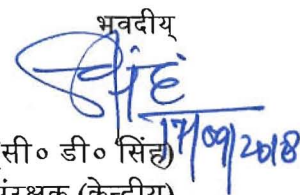 भवदीय्
सिंह
17/09/2018
सी० डी० सिंह)
(केन्द्रीय)